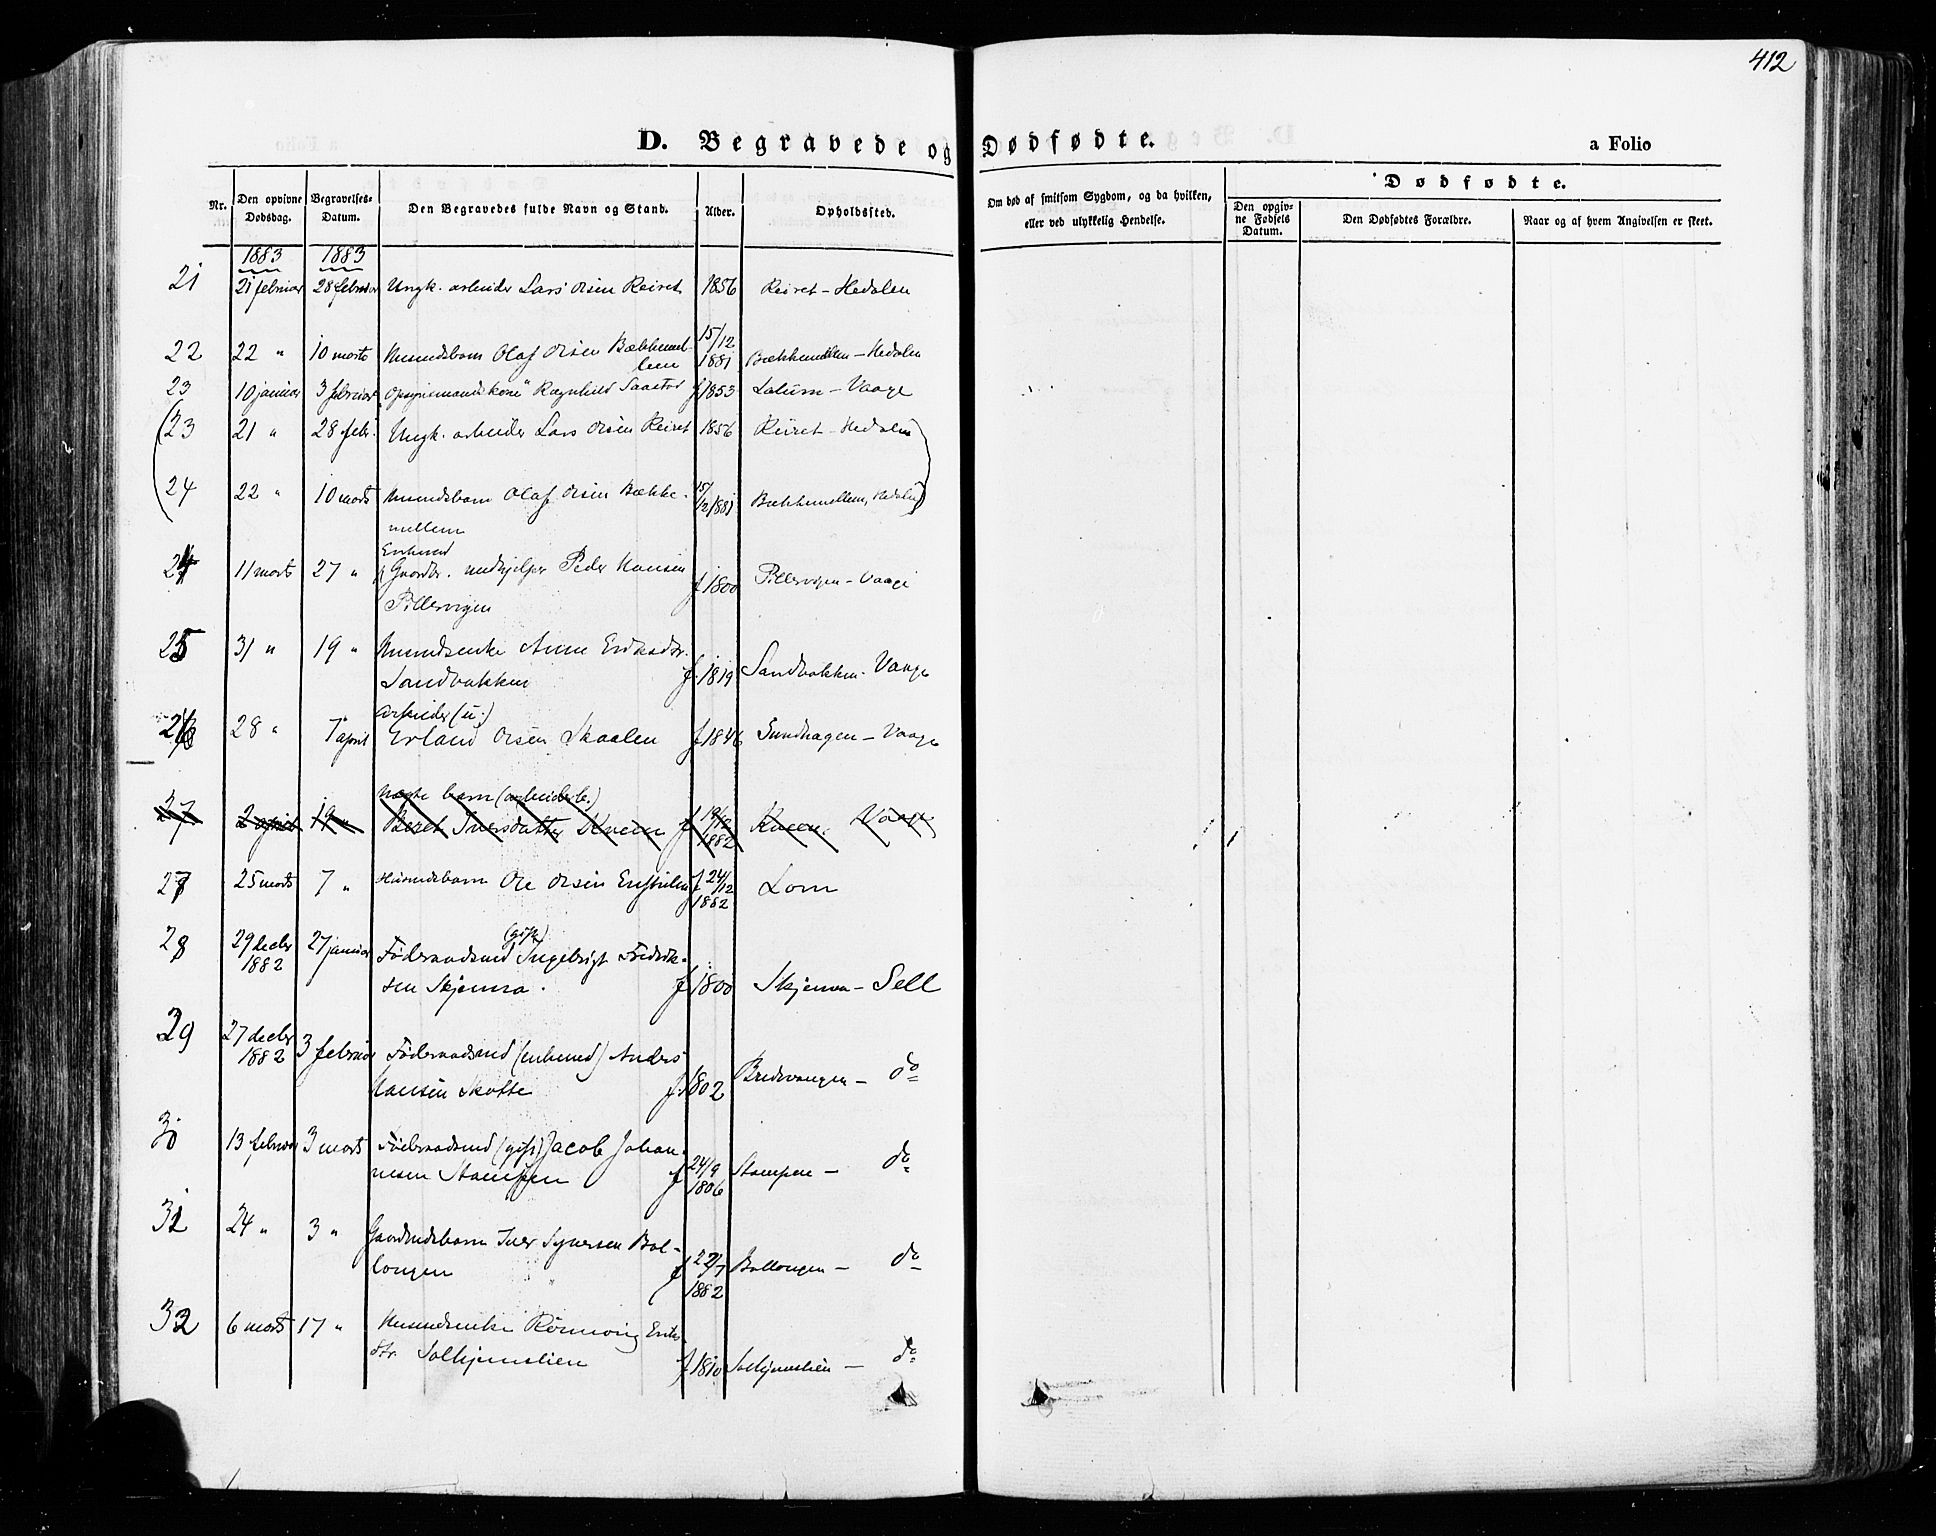 412
D. Begravede og Dødfødte.
a Folio
Nr.
Den opgivne Dødsdag.
Begravelses-Datum.
Den Begravedes fulde Navn og Stand.
Alder.
Opholdssted.
Om død af smitsom Sygdom, og da hvilken,
eller ved ulykkelig Hendelse.
Dødfødte.
Den opgiv-
ne Fødsels
Datum.
Den Dødfødtes Forældre.
Naar og af hvem Angivelsen er skeet.
1883 1883
21 21 februar 28 februar Ungk. arbeider Lars Olsen Reiret 1856 Reiret - Hedalen
22 22 " 10 marts Husmdsbarn Olaf Olsen Bækkemel-
lem 15/12 1881 Bækkemellem - Hedalen
23 10 januar 3 februar Opsynsmands kone Ragnhild Saastad f 1853 Lalum - Vaage
(23 21 " 28 febr. Ungk. arbeider Lars Olsen Reiret 1856 Reiret - Hedalen)
(24 22 " 10 marts Husmdsbarn Olaf Olsen Bække-
mellem 15/12 1881 Bækkemellem, Hedalen)
24 11 marts 27 " Enkemd
Gaardbr. medhjelper Peder Hansen
Pillervigen f 1800 Pillervigen - Vaage
25 31 " 19 " Husmdsenke Anne Eriksdtr.
Sandbakken f. 1819 Sandbakken - Vaage
26 28 " 7 april Arbeider (u.)
Erland Olsen Skaalen f 1846 Sundhagen - Vaage
27 2 april 19 " barn (arbeiderb.)
Beret Iversdatter Kveen f 19/12 1882 Kveen. Vaage
27 25 marts 7 " Husmdsbarn Ole Olsen f 24/12 1882 Lom
28 29 decbr 1882 27 januar Føderaadsmd (gift) Ingebrigt Fredrik-
sen Skjenna. f 1800 Skjenna - Sell
29 27 decbr 1882 3 februar Føderaadsmd (enkemd) Anders
Hansen Skotte f. 1802 Bredevangen - do
30 13 februar 3 marts Føderaadsmd (gift) Jacob Johan-
nesen Stampen f 24/9 1806 Stampen - do
31 24 " 3 " Gaardmdsbarn Iver Syversen Bal-
longen f 22/7 1882 Ballongen - do
32 6 marts 17 " Husmdsenke Rønnoug Eriks-
dtr. Solhjemslien f 1810 Solhjemslien - do